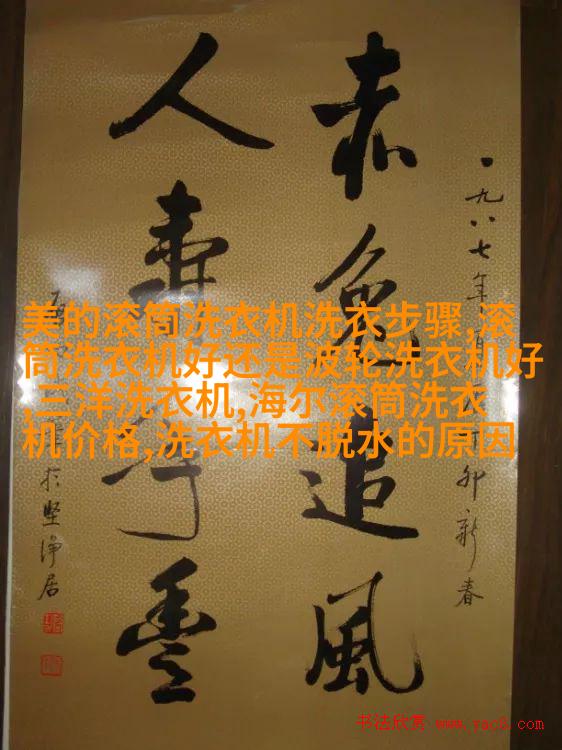 一九八七年
卯新春
赤兔追風
人壽年豐
於堅净居
美的滚筒洗衣机洗衣步骤,滚
筒洗衣机好还是波轮洗衣机好
,三洋洗衣机,海尔滚筒洗衣
机价格,洗衣机不脱水的原因
书法欣赏 www.yac8.com